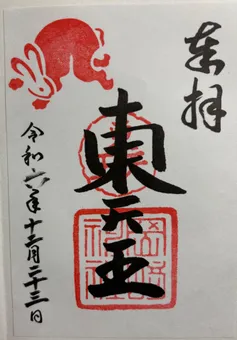 奉拝
東天王
令和六年十二月二十三日